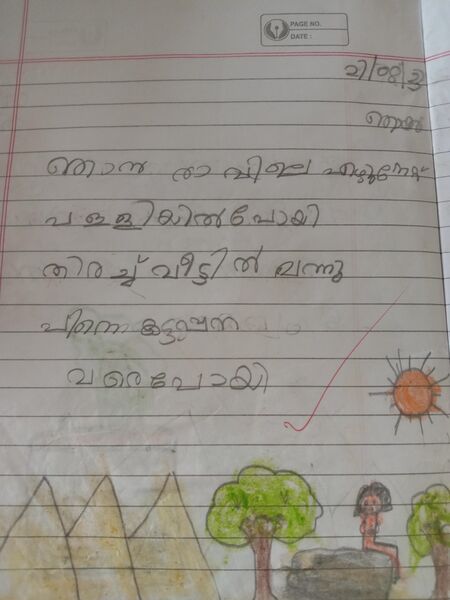 PAGE NO.
DATE :
ഞായർ
ഞാൻ രാവിലെ എഴുന്നേറ്റ്
പള്ളിയിൽ പോയി
തിരച്ച് വീട്ടിൽ വന്നു
പിന്നെ കട്ടപ്പന
വരെ പോയി